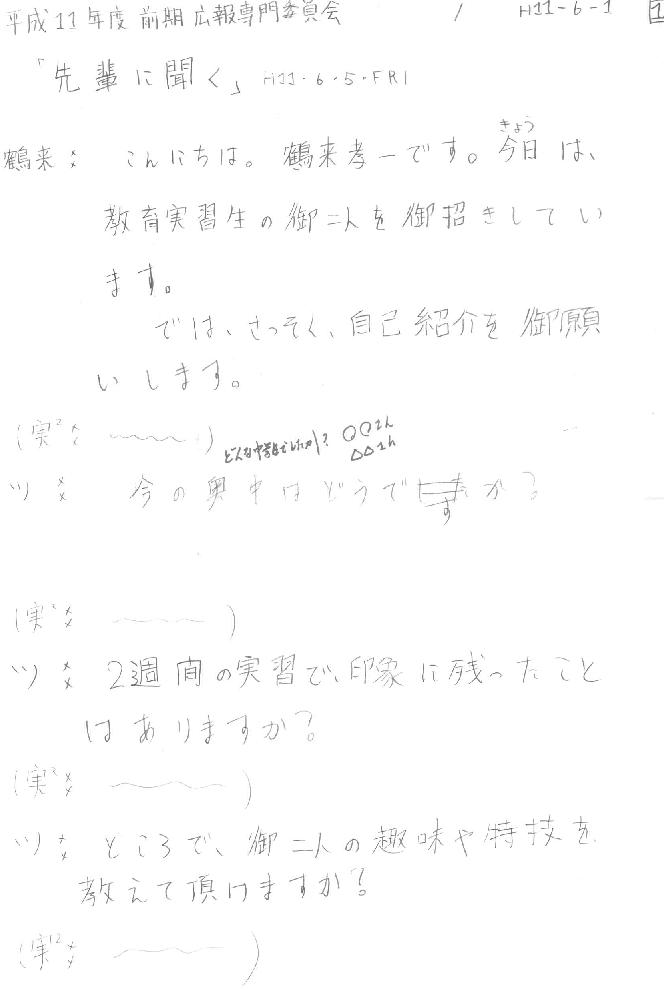 平成11年度 前期 広報専門委員会 / H11-6-1 1
「先輩に聞く」 H11・6・5・FRI
きょう
鶴来： こんにちは。鶴来孝一です。今日は、
教育実習生の御二人を御招きしてい
ます。
では、さっそく、自己紹介を御願
いします。
(実² ： 〜〜〜) ○○さん
△△さん
ツ： 今の奥中はどうですか？
(実² ： 〜〜〜)
ツ： 2週間の実習で、印象に残ったこと
はありますか？
(実² ： 〜〜〜)
ツ： ところで、御二人の趣味や特技を
教えて頂けますか？
(実 ： 〜〜〜)